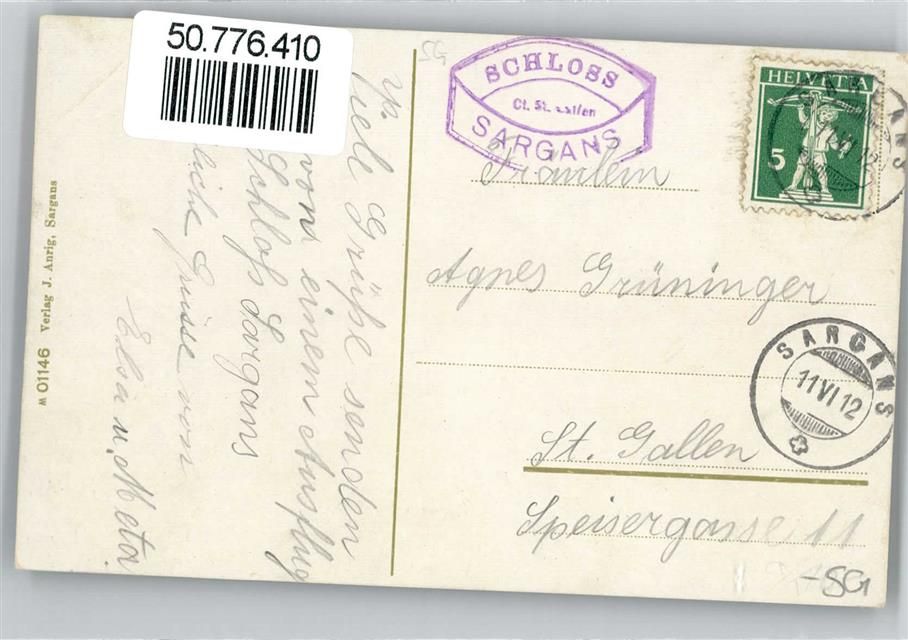 50.776.410
Viele Grüße senden
von einem Ausflug
Schloß Sargans
liche Grüsse von
Elsa u. Meta.
W 01146 Verlag J. Anrig, Sargans
SG
SCHLOSS
Ct. St. Gallen
SARGANS
HELVETIA
5
SARGANS
Fräulein
Agnes Grüninger
SARGANS
11 VI 12
St. Gallen
Speisergasse 11
-SG